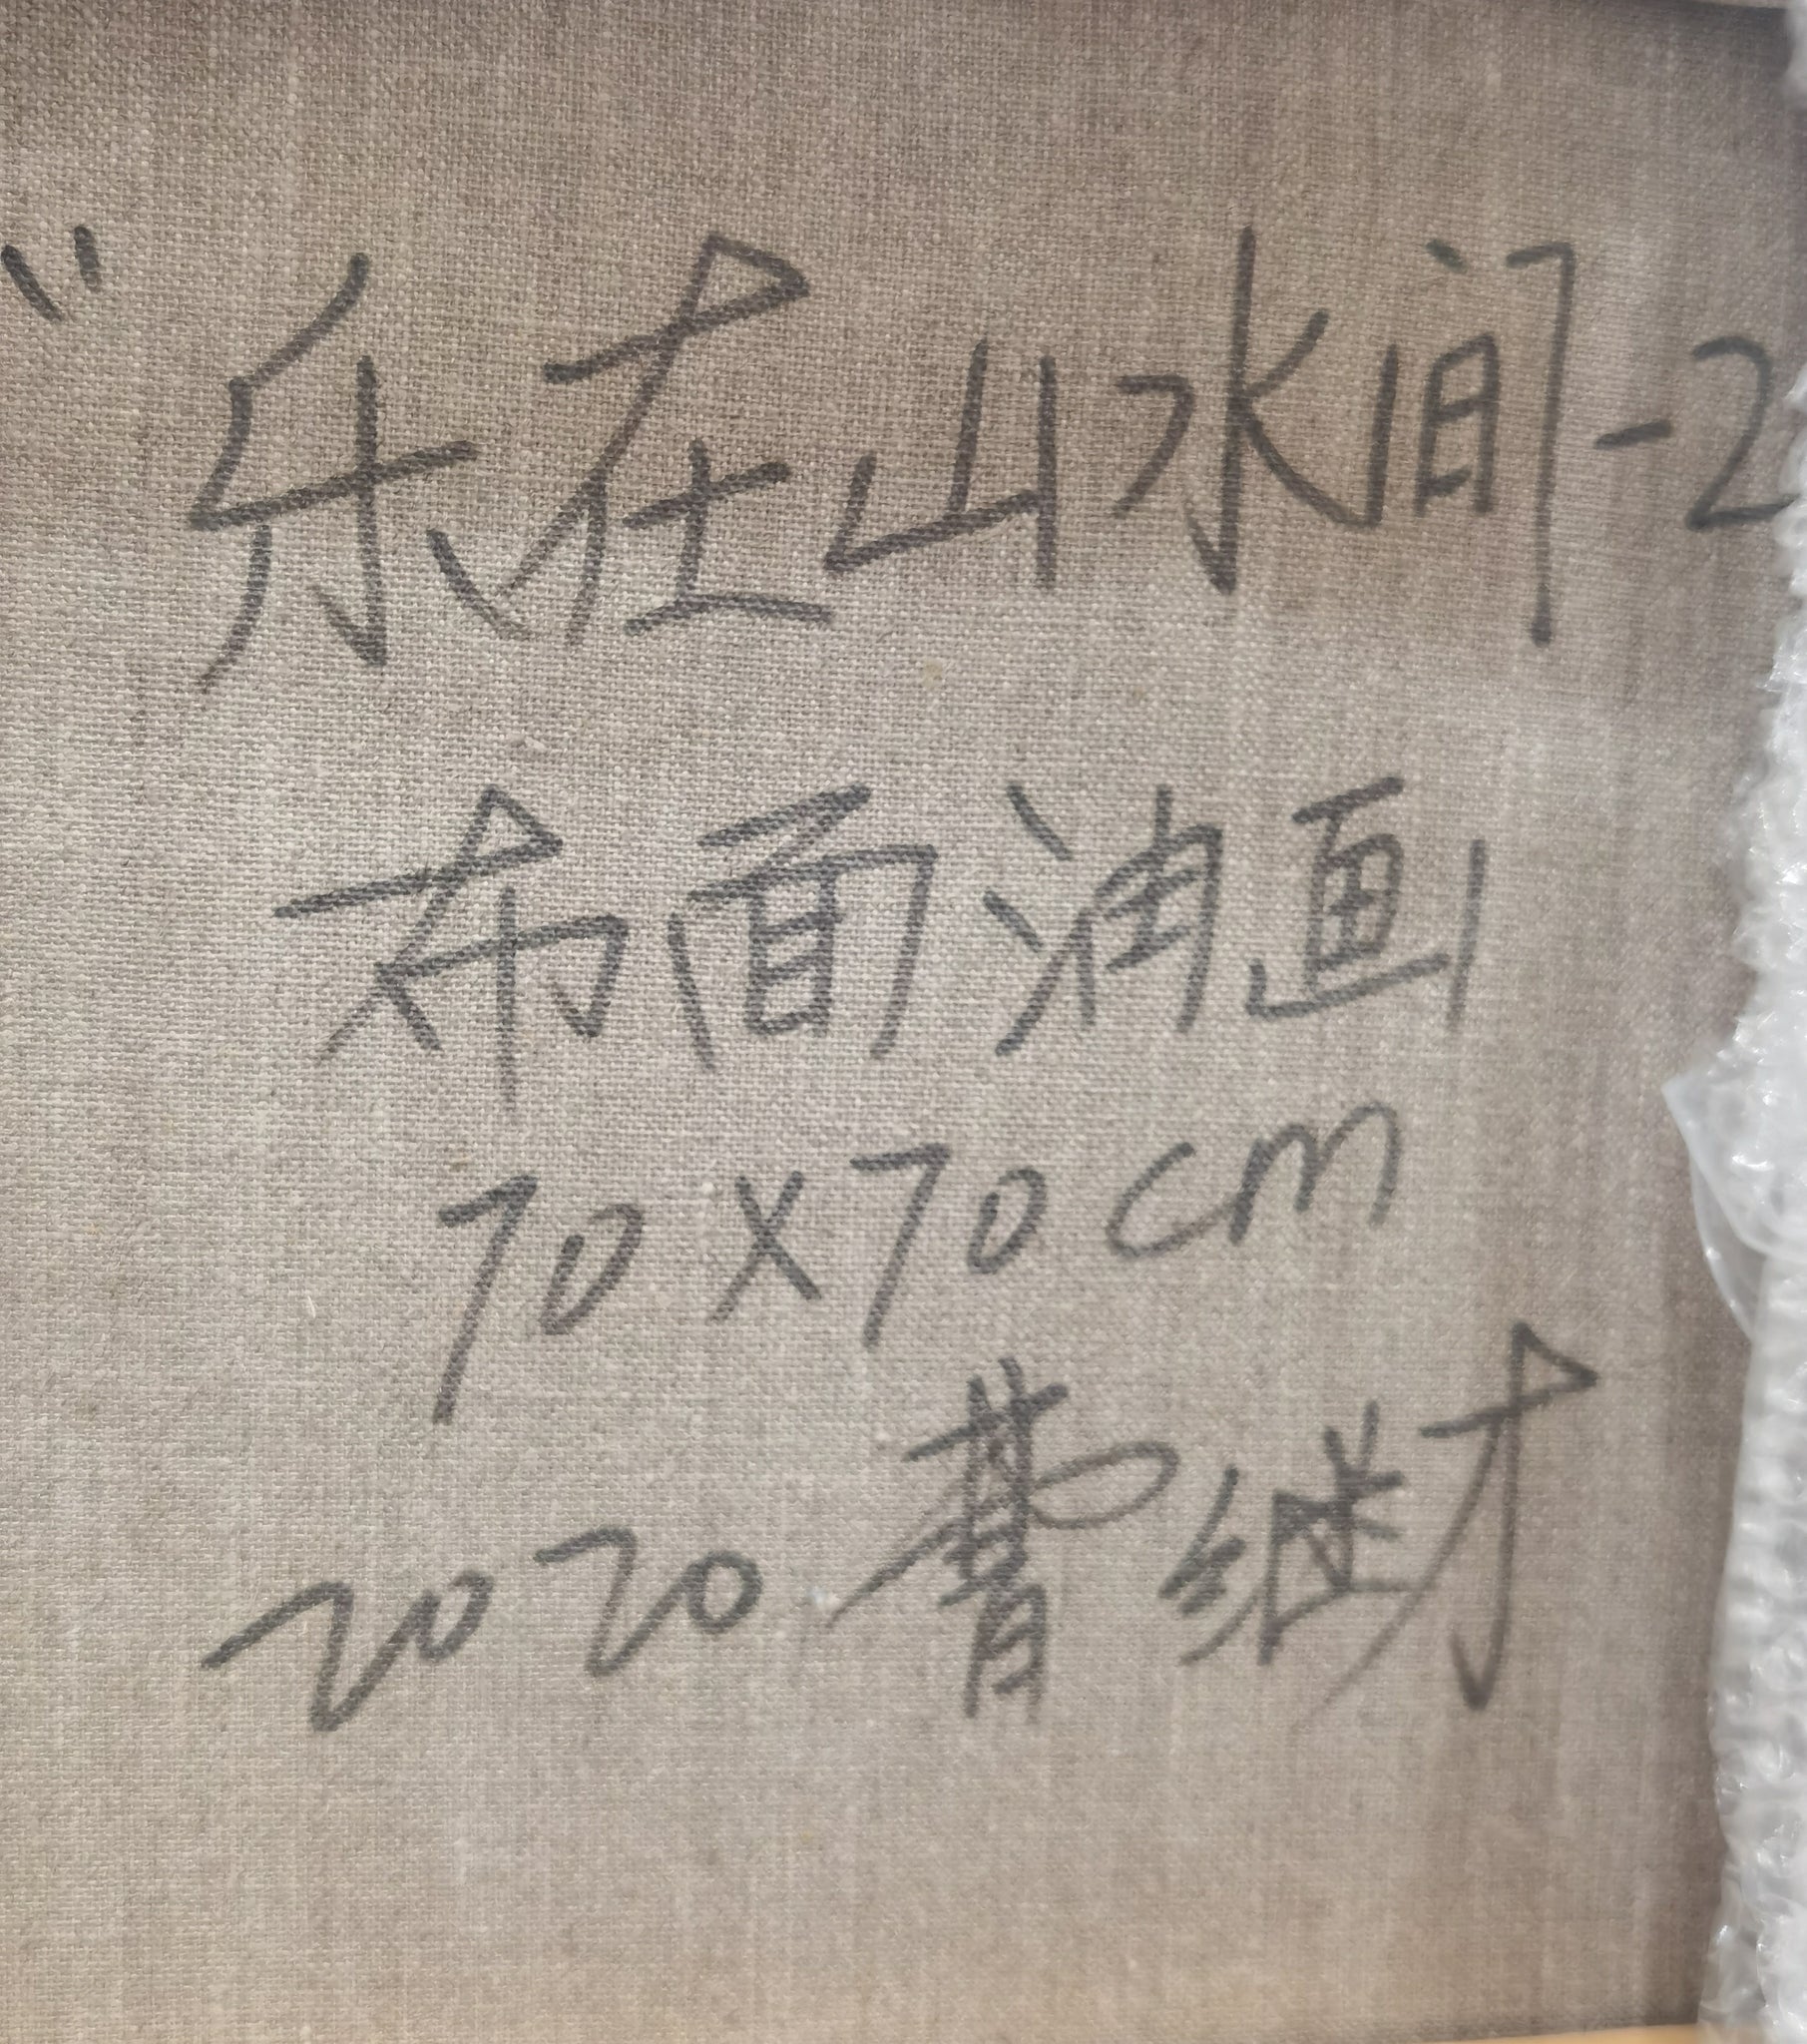 “乐在山水间-2
布面油画
70X70cm
2020 曹继才